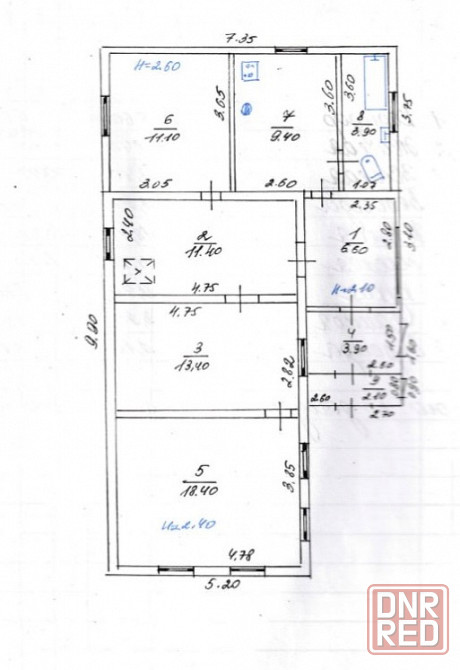 7.35
H=2.60
3.65
3.60
3.60
3.75
6
11.10
7
9.40
8
3.90
3.05
2.60
1.07
2.35
2.40
2
11.40
1
6.60
2.80
3.10
4.75
H=2.10
4.75
9.90
3
13.40
2.82
4
3.90
1.50
2.60
9
2.10
2.60
2.70
5
18.40
3.85
H=2.40
4.78
5.20
DNR
RED